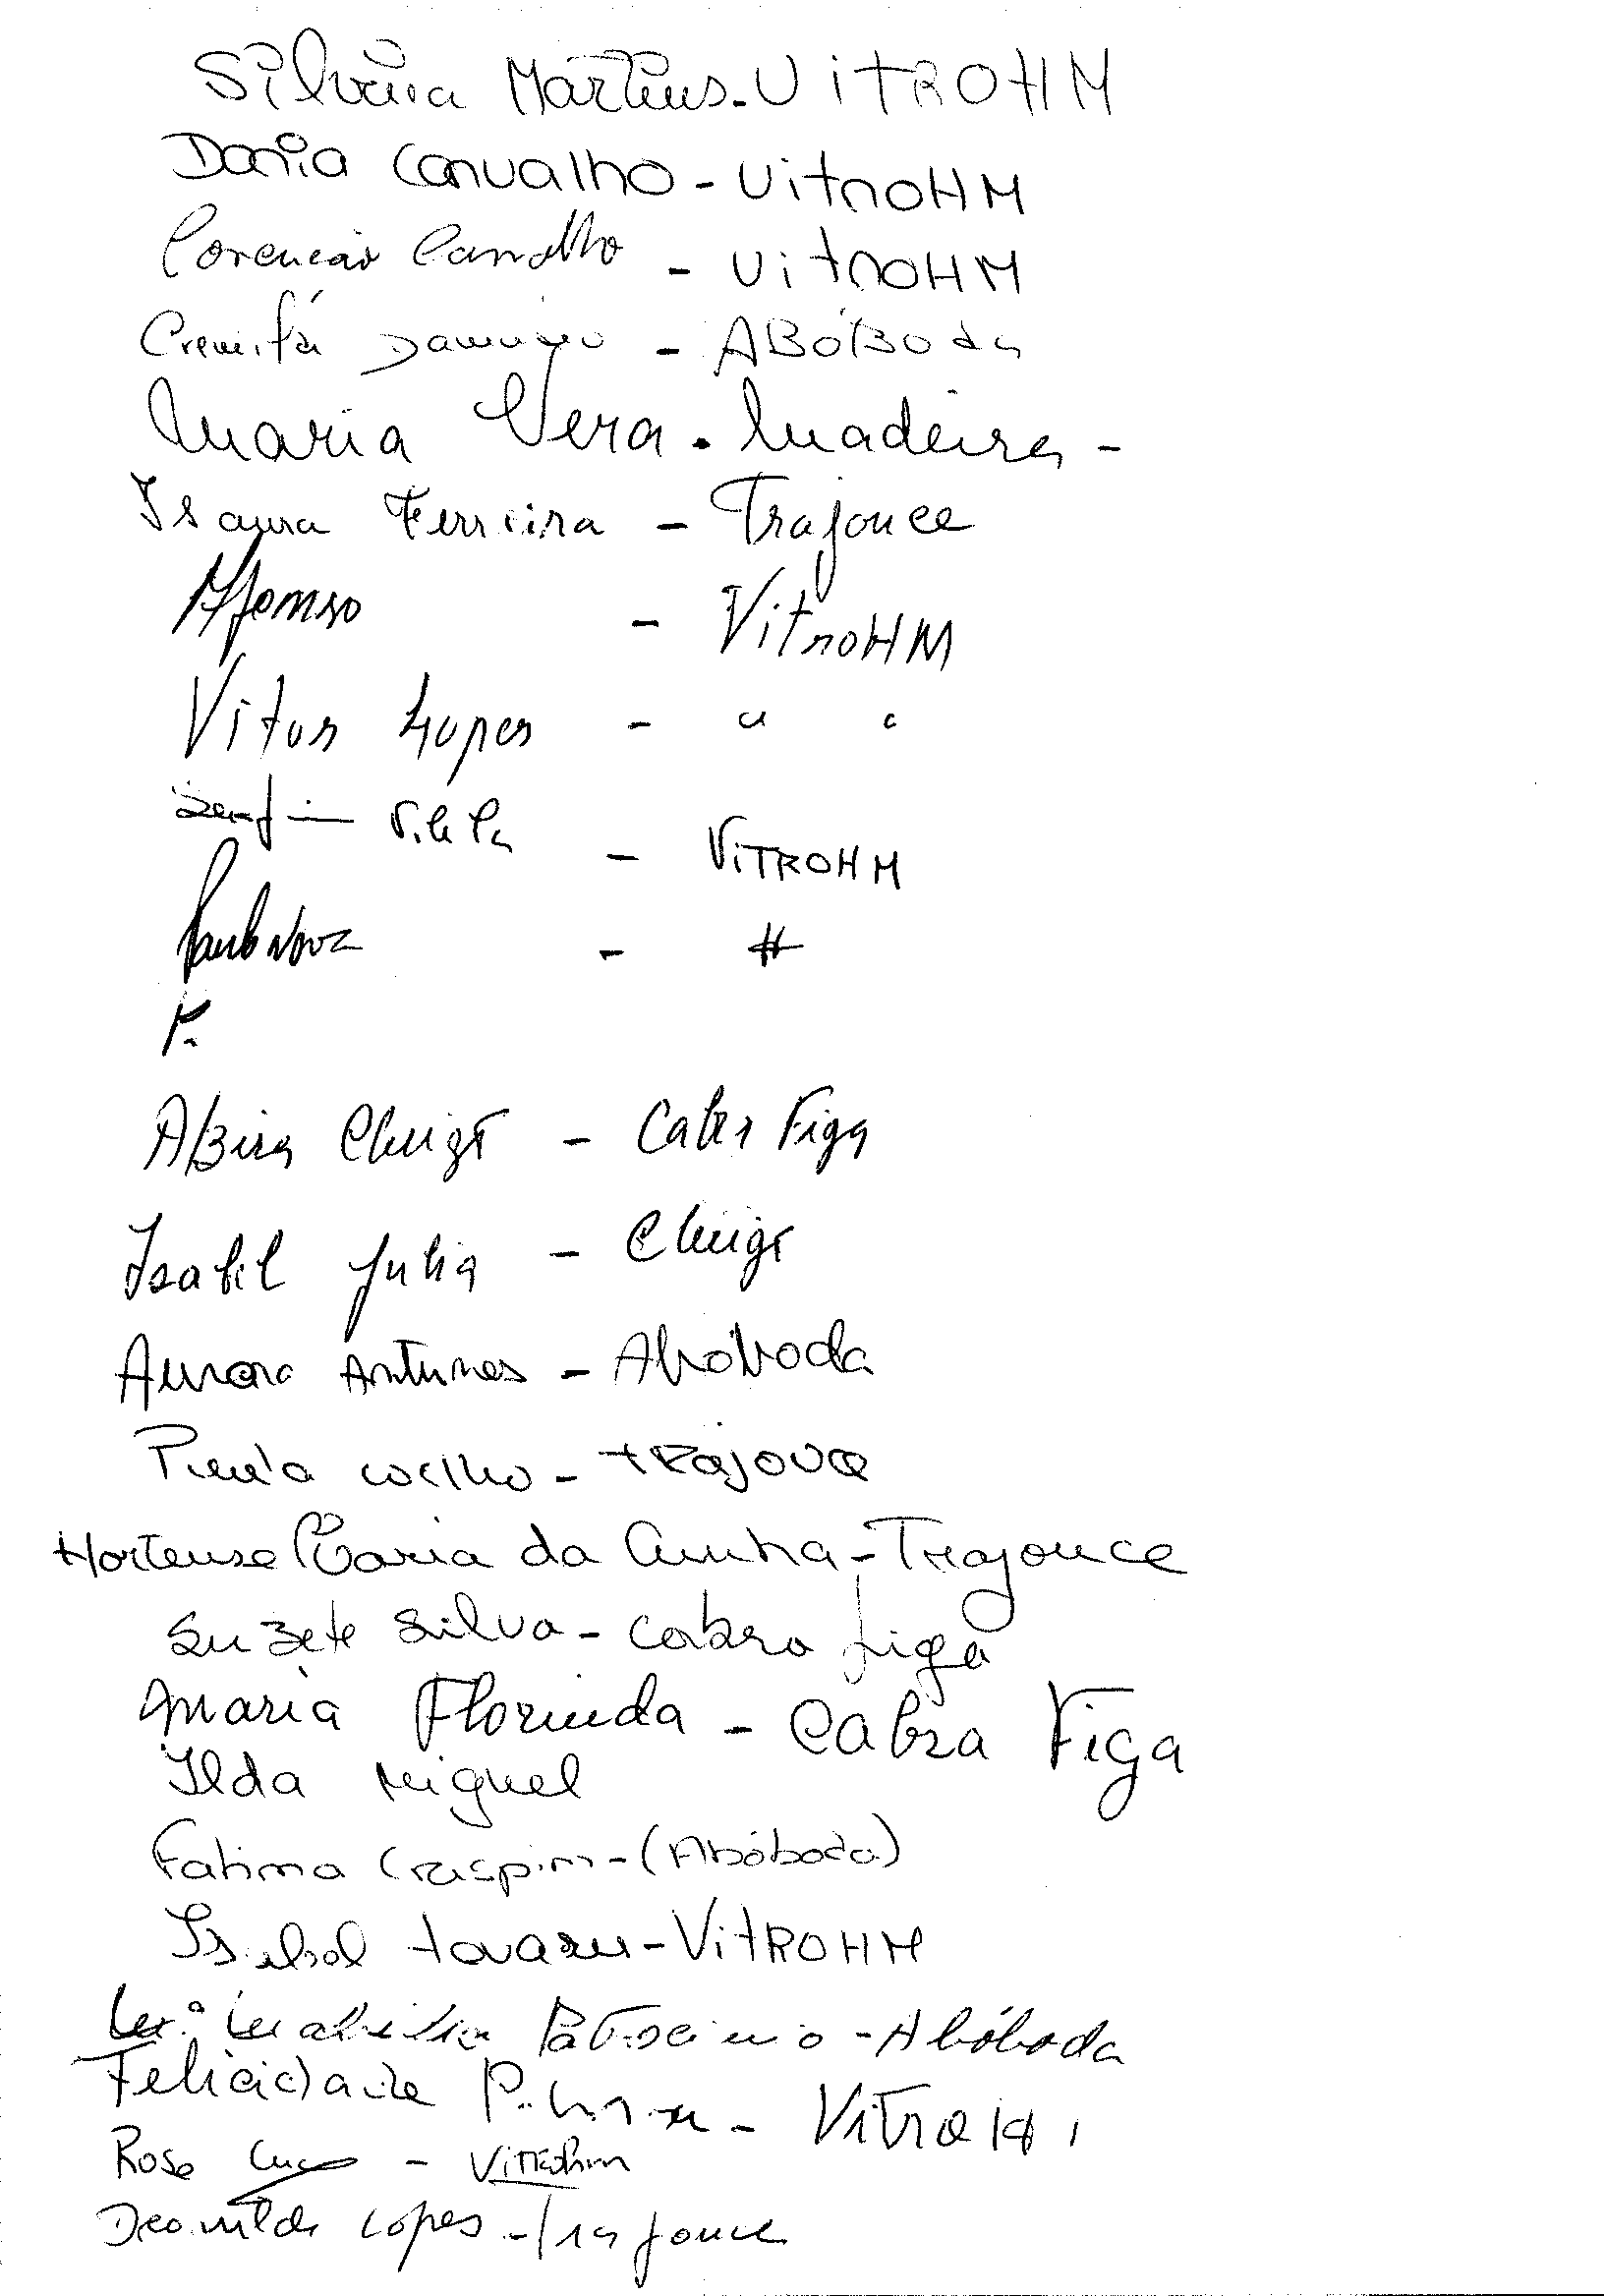 Silvéria Martins - VITROHM
Dania Carvalho - VitroHM
Conceição Carvalho - VitroHM
- ABÓBODA
Maria Vera. Madeira -
Isaura Ferreira - Trajouce
Afonso - VitroHM
Vitor Lopes - " "
Serafim Vilela - VITROHM
Paulo Nova - #
P.
- Cabra Figa
Isabel Julia -
Aurora Antunes - Abóboda
Coelho - Trajouce
Hortense Maria da Cunha - Trajouce
Suzete Silva - Cabra figa
Maria Florinda - Cabra Figa
Ilda Miguel
Fatima Crespim - (Abóboda)
Isabel Tavares - VITROHM
Patrocinio - Abóboda
Felicidade - Vitro
Rosa - Vitrohm
Deonilde Lopes - Trajouce